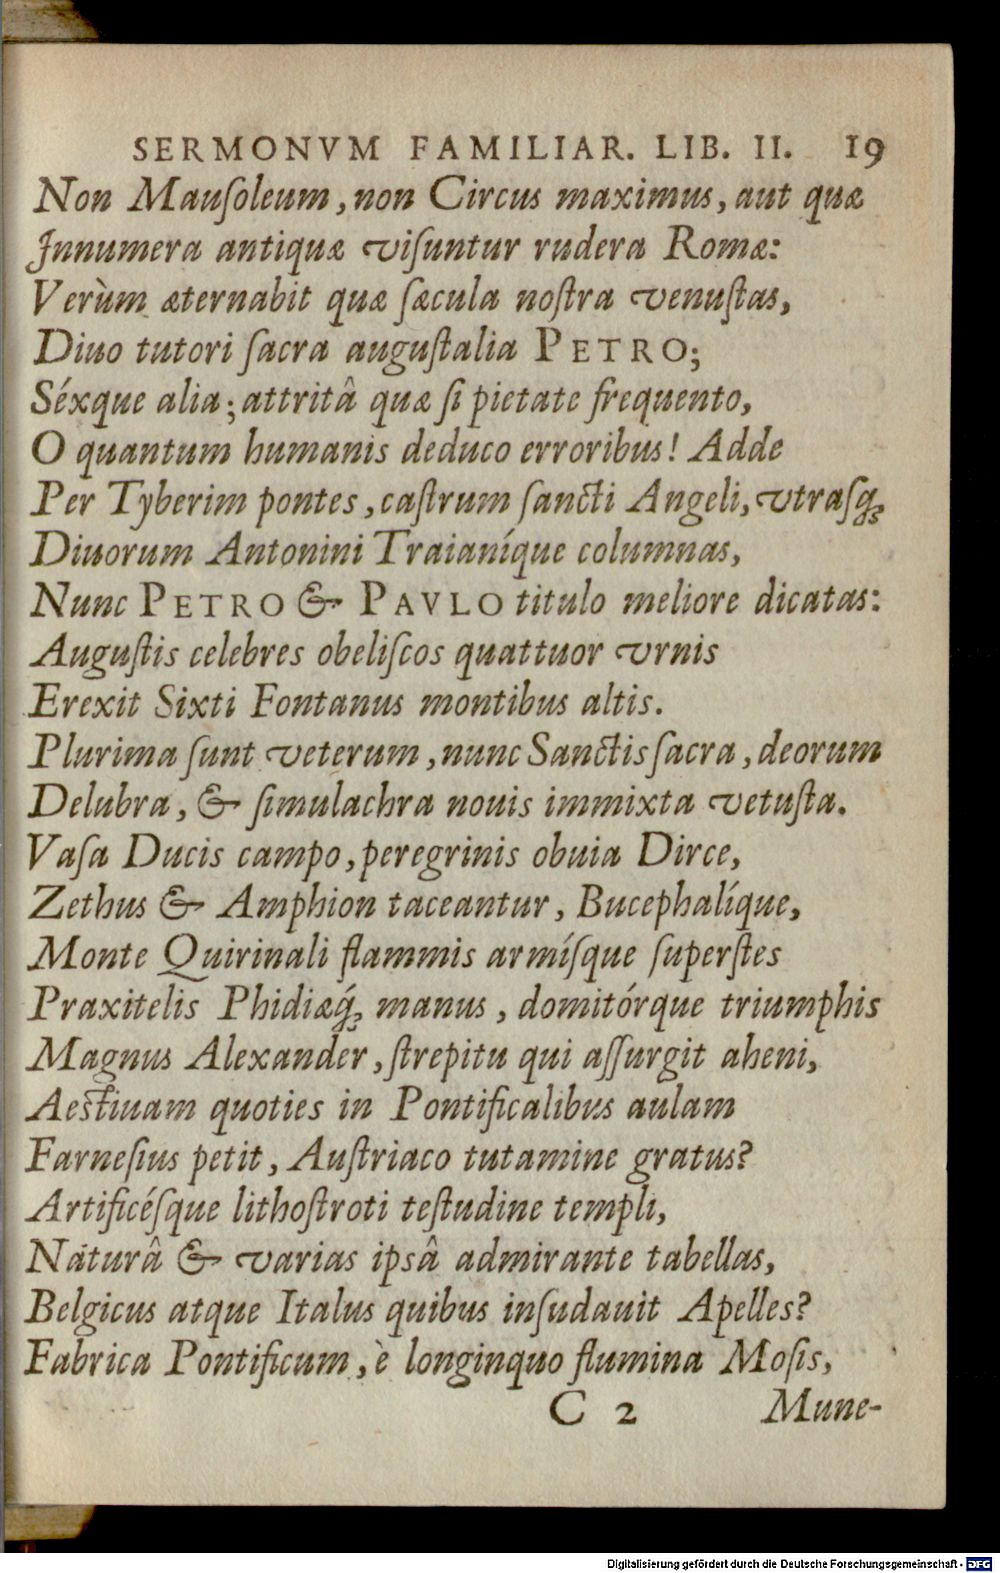 SERMONVM FAMILIAR. LIB. II. 19
Non Mauſoleum, non Circus maximus, aut quæ
Innumera antiquæ viſuntur rudera Romæ:
Verùm æternabit quæ ſæcula noſtra venuſtas,
Diuo tutori ſacra auguſtalia PETRO;
Séxque alia; attritâ quæ ſi pietate frequento,
O quantum humanis deduco erroribus! Adde
Per Tyberim pontes, caſtrum ſancti Angeli, vtraſq́;
Diuorum Antonini Traianíque columnas,
Nunc PETRO & PAVLO titulo meliore dicatas:
Auguſtis celebres obeliſcos quattuor vrnis
Erexit Sixti Fontanus montibus altis.
Plurima ſunt veterum, nunc Sanctis ſacra, deorum
Delubra, & ſimulachra nouis immixta vetuſta.
Vaſa Ducis campo, peregrinis obuia Dirce,
Zethus & Amphion taceantur, Bucephalíque,
Monte Quirinali flammis armíſque ſuperſtes
Praxitelis Phidiæq́; manus, domitórque triumphis
Magnus Alexander, ſtrepitu qui aſſurgit aheni,
Aeſtiuam quoties in Pontificalibus aulam
Farneſius petit, Auſtriaco tutamine gratus?
Artificéſque lithoſtroti teſtudine templi,
Naturâ & varias ipsâ admirante tabellas,
Belgicus atque Italus quibus inſudauit Apelles?
Fabrica Pontificum, è longinquo flumina Moſis,
C 2 Mune-
Digitalisierung gefördert durch die Deutsche Forschungsgemeinschaft - DFG